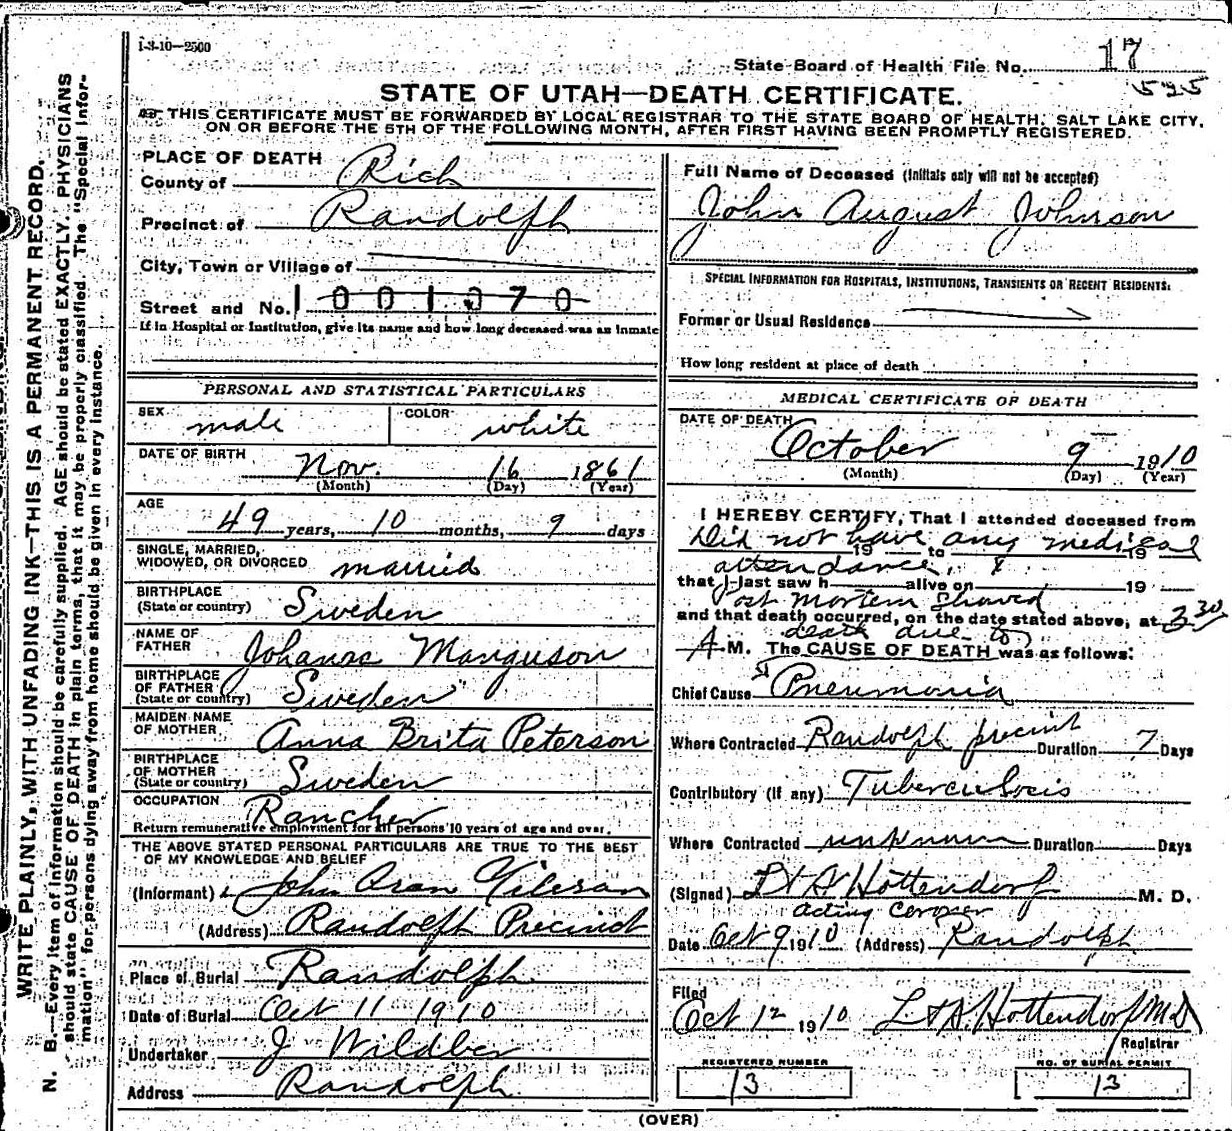 1-3-10—2500
State Board of Health File No. 17
525
STATE OF UTAH—DEATH CERTIFICATE.
THIS CERTIFICATE MUST BE FORWARDED BY LOCAL REGISTRAR TO THE STATE BOARD OF HEALTH, SALT LAKE CITY,
ON OR BEFORE THE 5TH OF THE FOLLOWING MONTH, AFTER FIRST HAVING BEEN PROMPTLY REGISTERED.
PLACE OF DEATH
County of Rich
Precinct of Randolph
City, Town or Village of
Street and No. 1001370
If in Hospital or Institution, give its name and how long deceased was an inmate
PERSONAL AND STATISTICAL PARTICULARS
SEX male COLOR white
DATE OF BIRTH Nov. 16 1861
(Month) (Day) (Year)
AGE 49 years, 10 months, 9 days
SINGLE, MARRIED,
WIDOWED, OR DIVORCED married
BIRTHPLACE
(State or country) Sweden
NAME OF
FATHER Johanas Manguson
BIRTHPLACE
OF FATHER
(State or country) Sweden
MAIDEN NAME
OF MOTHER Anna Brita Peterson
BIRTHPLACE
OF MOTHER
(State or country) Sweden
OCCUPATION Rancher
Return remunerative employment for all persons 10 years of age and over.
THE ABOVE STATED PERSONAL PARTICULARS ARE TRUE TO THE BEST
OF MY KNOWLEDGE AND BELIEF
(Informant) John Oran
(Address) Randolph Precinct
Place of Burial Randolph
Date of Burial Oct 11 1910
Undertaker J Wildber
Address Randolph
Full Name of Deceased (Initials only will not be accepted)
John August Johnson
SPECIAL INFORMATION FOR HOSPITALS, INSTITUTIONS, TRANSIENTS OR RECENT RESIDENTS:
Former or Usual Residence
How long resident at place of death
MEDICAL CERTIFICATE OF DEATH
DATE OF DEATH October 9 1910
(Month) (Day) (Year)
I HEREBY CERTIFY, That I attended deceased from
Did not have any medical
19 to 19
attendance, &
that I last saw h alive on 19
Post Mortem Showed
and that death occurred, on the date stated above, at 3 30
death due to
A M. The CAUSE OF DEATH was as follows:
Chief Cause Pneumonia
Where Contracted Randolph precinct Duration 7 Days
Contributory (if any) Tuberculosis
Where Contracted unknown Duration Days
(Signed) Hottendorf M. D.
acting Coroner
Date Oct 9 1910 (Address) Randolph
Filed
Oct 12 1910 Hottendorf MD
Registrar
REGISTERED NUMBER NO. OF BURIAL PERMIT
13 13
(OVER)
WRITE PLAINLY, WITH UNFADING INK—THIS IS A PERMANENT RECORD.
N. B.—Every item of information should be carefully supplied. AGE should be stated EXACTLY. PHYSICIANS
should state CAUSE OF DEATH in plain terms, that it may be properly classified. The "Special Infor-
mation" for persons dying away from home should be given in every instance.